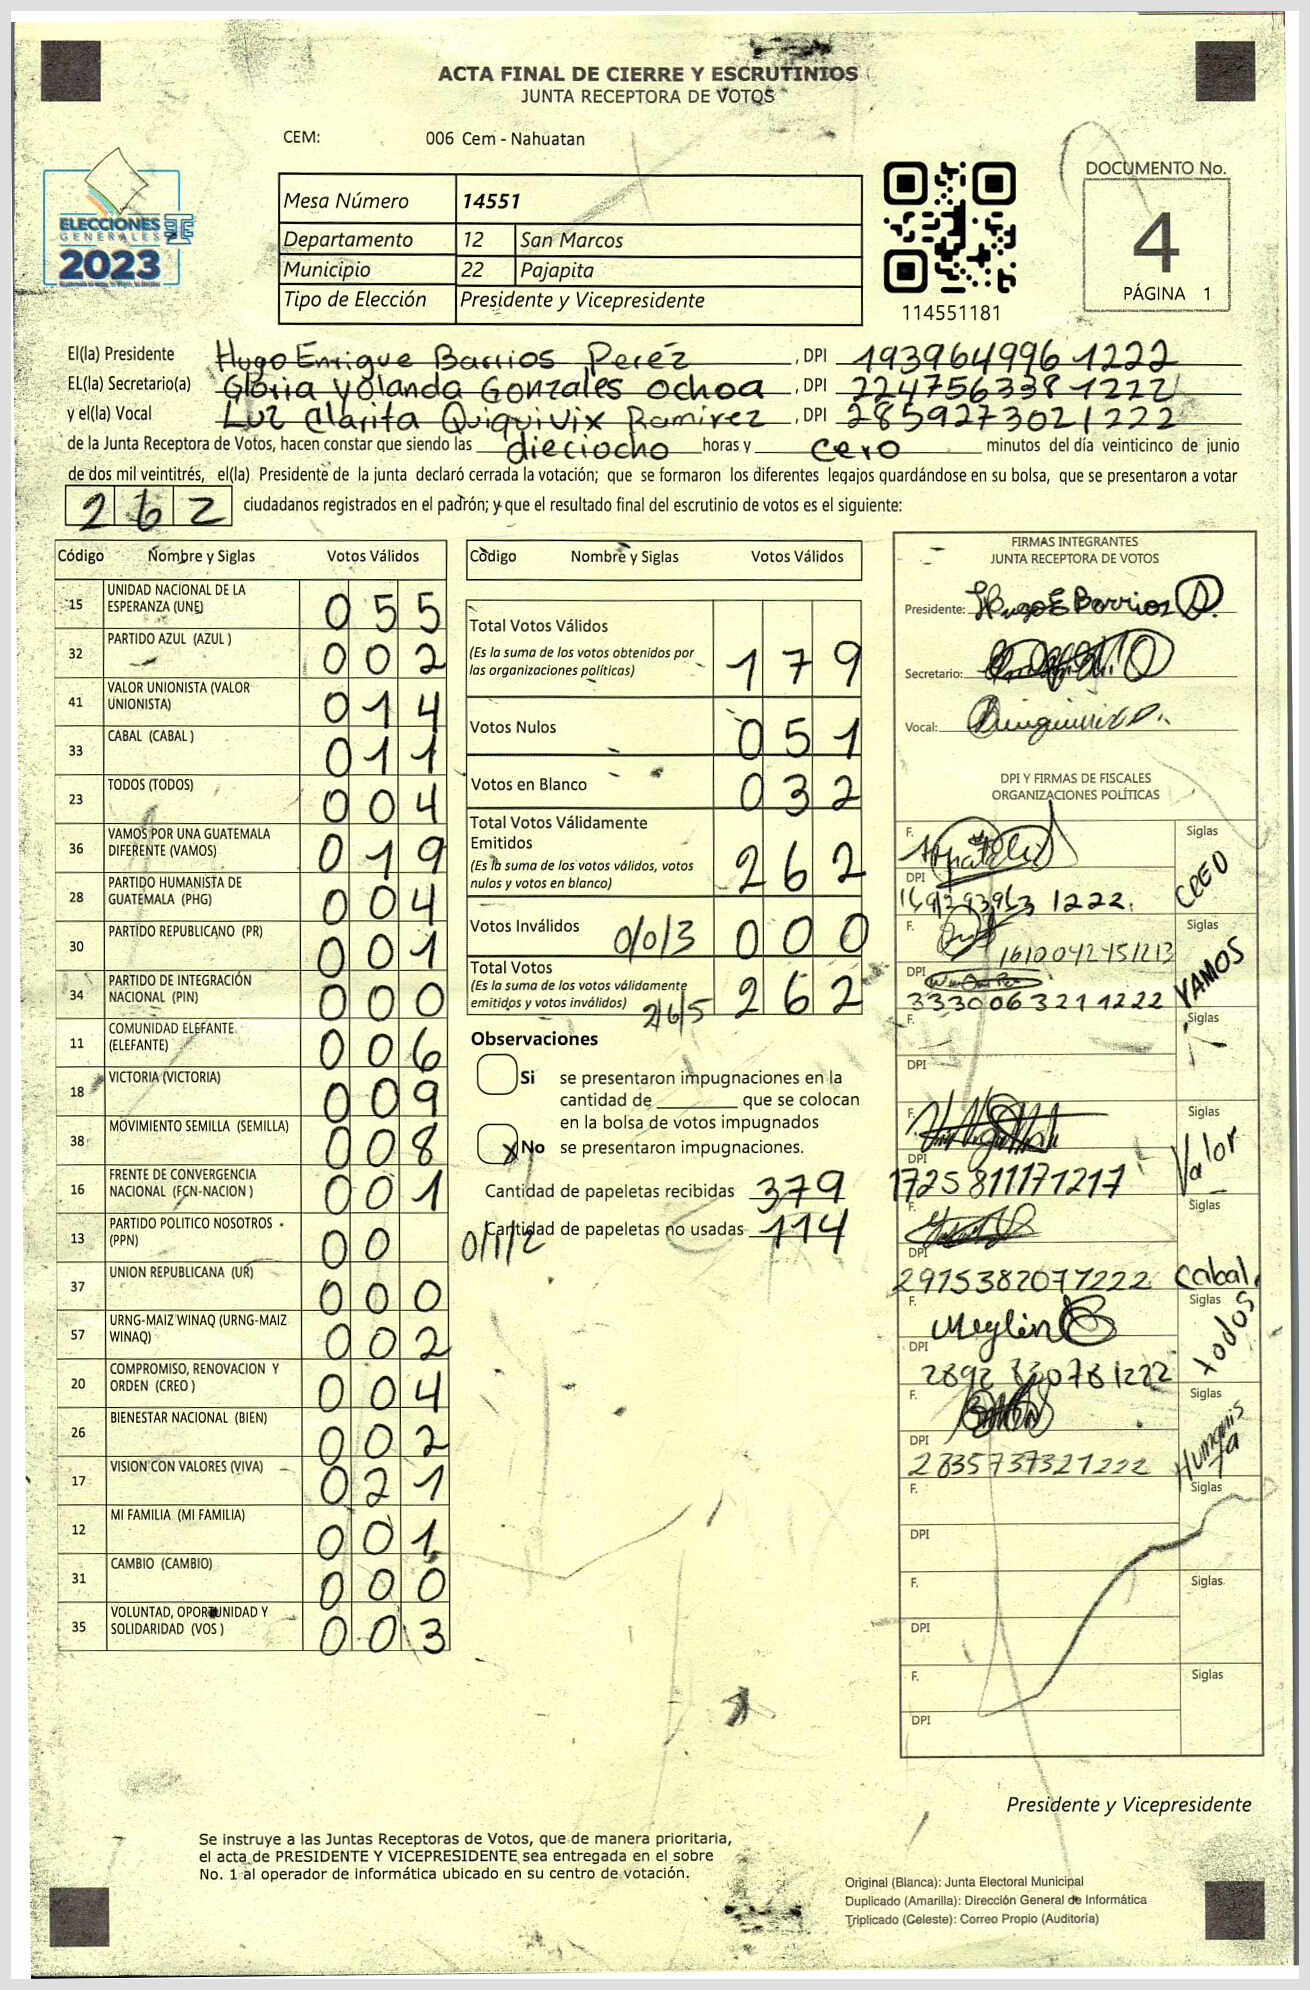 ACTA FINAL DE CIERRE Y ESCRUTINIOS
JUNTA RECEPTORA DE VOTOS
CEM: 006 Cem - Nahuatan
ELECCIONES
GENERALES
2023
Mesa Número 14551
Departamento 12 San Marcos
Municipio 22 Pajapita
Tipo de Elección Presidente y Vicepresidente
114551181
DOCUMENTO No.
4
PÁGINA 1
El(la) Presidente Hugo Enrique Barrios Peréz , DPI 193964996 1222
EL(la) Secretario(a) Gloria Yolanda Gonzales Ochoa , DPI 224756338 1222
y el(la) Vocal Luz Clarita Quiquivix Ramirez , DPI 2859273021222
de la Junta Receptora de Votos, hacen constar que siendo las dieciocho horas y cero minutos del día veinticinco de junio
de dos mil veintitrés, el(la) Presidente de la junta declaró cerrada la votación; que se formaron los diferentes legajos guardándose en su bolsa, que se presentaron a votar
262 ciudadanos registrados en el padrón; y que el resultado final del escrutinio de votos es el siguiente:
Código Nombre y Siglas Votos Válidos
15 UNIDAD NACIONAL DE LA ESPERANZA (UNE) 055
32 PARTIDO AZUL (AZUL ) 002
41 VALOR UNIONISTA (VALOR UNIONISTA) 014
33 CABAL (CABAL ) 011
23 TODOS (TODOS) 004
36 VAMOS POR UNA GUATEMALA DIFERENTE (VAMOS) 019
28 PARTIDO HUMANISTA DE GUATEMALA (PHG) 004
30 PARTIDO REPUBLICANO (PR) 001
34 PARTIDO DE INTEGRACIÓN NACIONAL (PIN) 000
11 COMUNIDAD ELEFANTE (ELEFANTE) 006
18 VICTORIA (VICTORIA) 009
38 MOVIMIENTO SEMILLA (SEMILLA) 008
16 FRENTE DE CONVERGENCIA NACIONAL (FCN-NACION ) 001
13 PARTIDO POLITICO NOSOTROS (PPN) 00
37 UNION REPUBLICANA (UR) 000
57 URNG-MAIZ WINAQ (URNG-MAIZ WINAQ) 002
20 COMPROMISO, RENOVACION Y ORDEN (CREO ) 004
26 BIENESTAR NACIONAL (BIEN) 002
17 VISION CON VALORES (VIVA) 021
12 MI FAMILIA (MI FAMILIA) 001
31 CAMBIO (CAMBIO) 000
35 VOLUNTAD, OPORTUNIDAD Y SOLIDARIDAD (VOS ) 003
Código Nombre y Siglas Votos Válidos
Total Votos Válidos
(Es la suma de los votos obtenidos por
las organizaciones políticas) 179
Votos Nulos 051
Votos en Blanco 032
Total Votos Válidamente
Emitidos
(Es la suma de los votos válidos, votos
nulos y votos en blanco) 262
Votos Inválidos 0/0/3 000
Total Votos
(Es la suma de los votos válidamente
emitidos y votos inválidos) 2/6/5 262
Observaciones
Si se presentaron impugnaciones en la
cantidad de ________ que se colocan
en la bolsa de votos impugnados
X No se presentaron impugnaciones.
Cantidad de papeletas recibidas 379
Cantidad de papeletas no usadas 114
0/1/2
FIRMAS INTEGRANTES
JUNTA RECEPTORA DE VOTOS
Presidente: Hugo E Barrios
Secretario:
Vocal:
DPI Y FIRMAS DE FISCALES
ORGANIZACIONES POLÍTICAS
F. Siglas
DPI CREO
F. Siglas
1610042451213
DPI VAMOS
3330063211222
F. Siglas
DPI
F. Siglas
DPI Valor
1725811171217
F. Siglas
DPI
2975382071222 Cabal.
F. Meylin Siglas
DPI todos
F. Siglas
DPI
2835737321222
F. Siglas
DPI
F. Siglas
DPI
F. Siglas
DPI
Presidente y Vicepresidente
Se instruye a las Juntas Receptoras de Votos, que de manera prioritaria,
el acta de PRESIDENTE Y VICEPRESIDENTE sea entregada en el sobre
No. 1 al operador de informática ubicado en su centro de votación.
Original (Blanca): Junta Electoral Municipal
Duplicado (Amarilla): Dirección General de Informática
Triplicado (Celeste): Correo Propio (Auditoría)